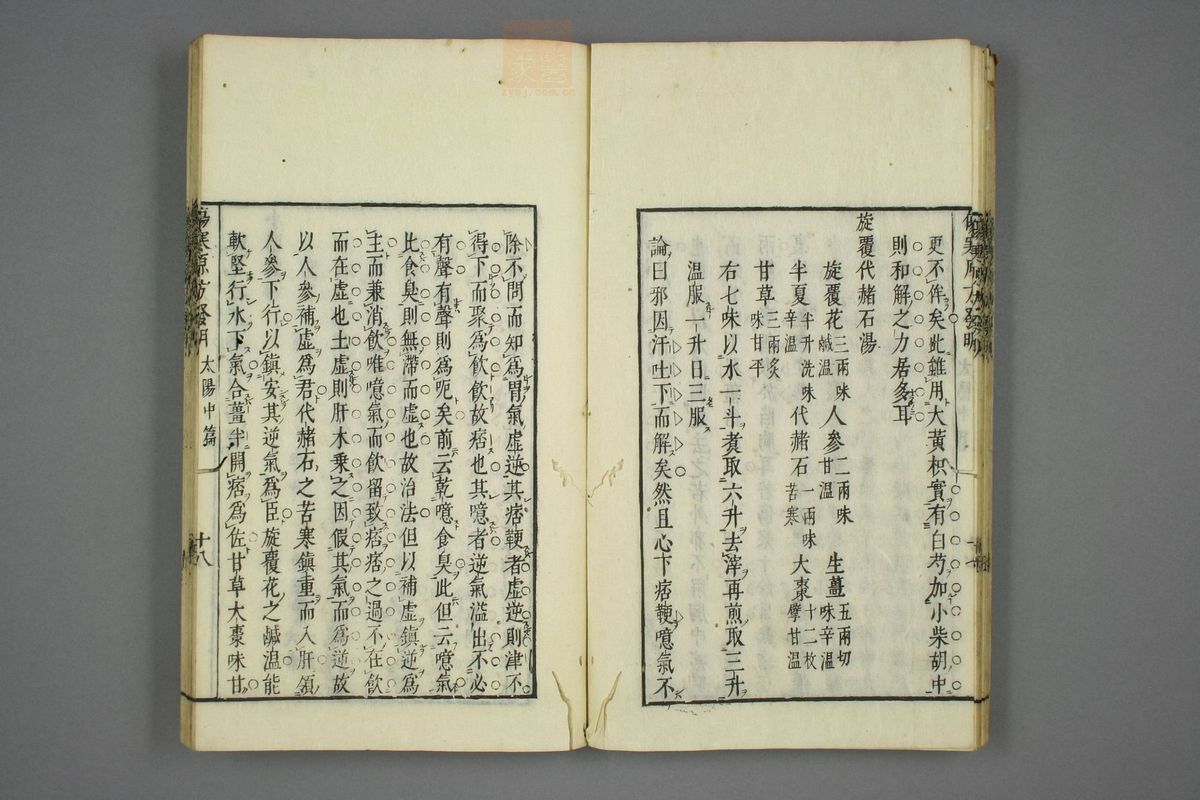 更不侔矣此雖用大黃枳實有白芍加小柴胡中
則和解之力居多耳
旋覆代赭石湯
旋覆花三兩味鹹溫 人參二兩味甘溫 生薑五兩切味辛溫
半夏半升洗味辛溫 代赭石一兩味苦寒 大棗十二枚擘甘溫
甘草三兩炙味甘平
右七味以水一斗煑取六升去滓再煎取三升
溫服一升日三服
論曰邪因汗吐下而解矣然且心下痞鞕噫氣不
除不問而知爲胃氣虛逆其痞鞕者虛逆則津不
得下而聚爲飲飲故痞也其噫者逆氣溢出不必
有聲有聲則爲呃矣前云乾噫食臭此但云噫氣
比食臭則無滯而虛也故治法但以補虛鎮逆爲
主而兼消飲唯噫氣而飲留致痞痞之過不在飲
而在虛也土虛則肝木乗之因假其氣而爲逆故
以人參補虛爲君代赭石之苦寒鎮重而入肝領
人參下行以鎮安其逆氣爲臣旋覆花之鹹溫能
軟堅行水下氣合薑半開痞爲佐甘草大棗味甘
傷寒原方發明 太陽中篇 十八
zysj.com.cn